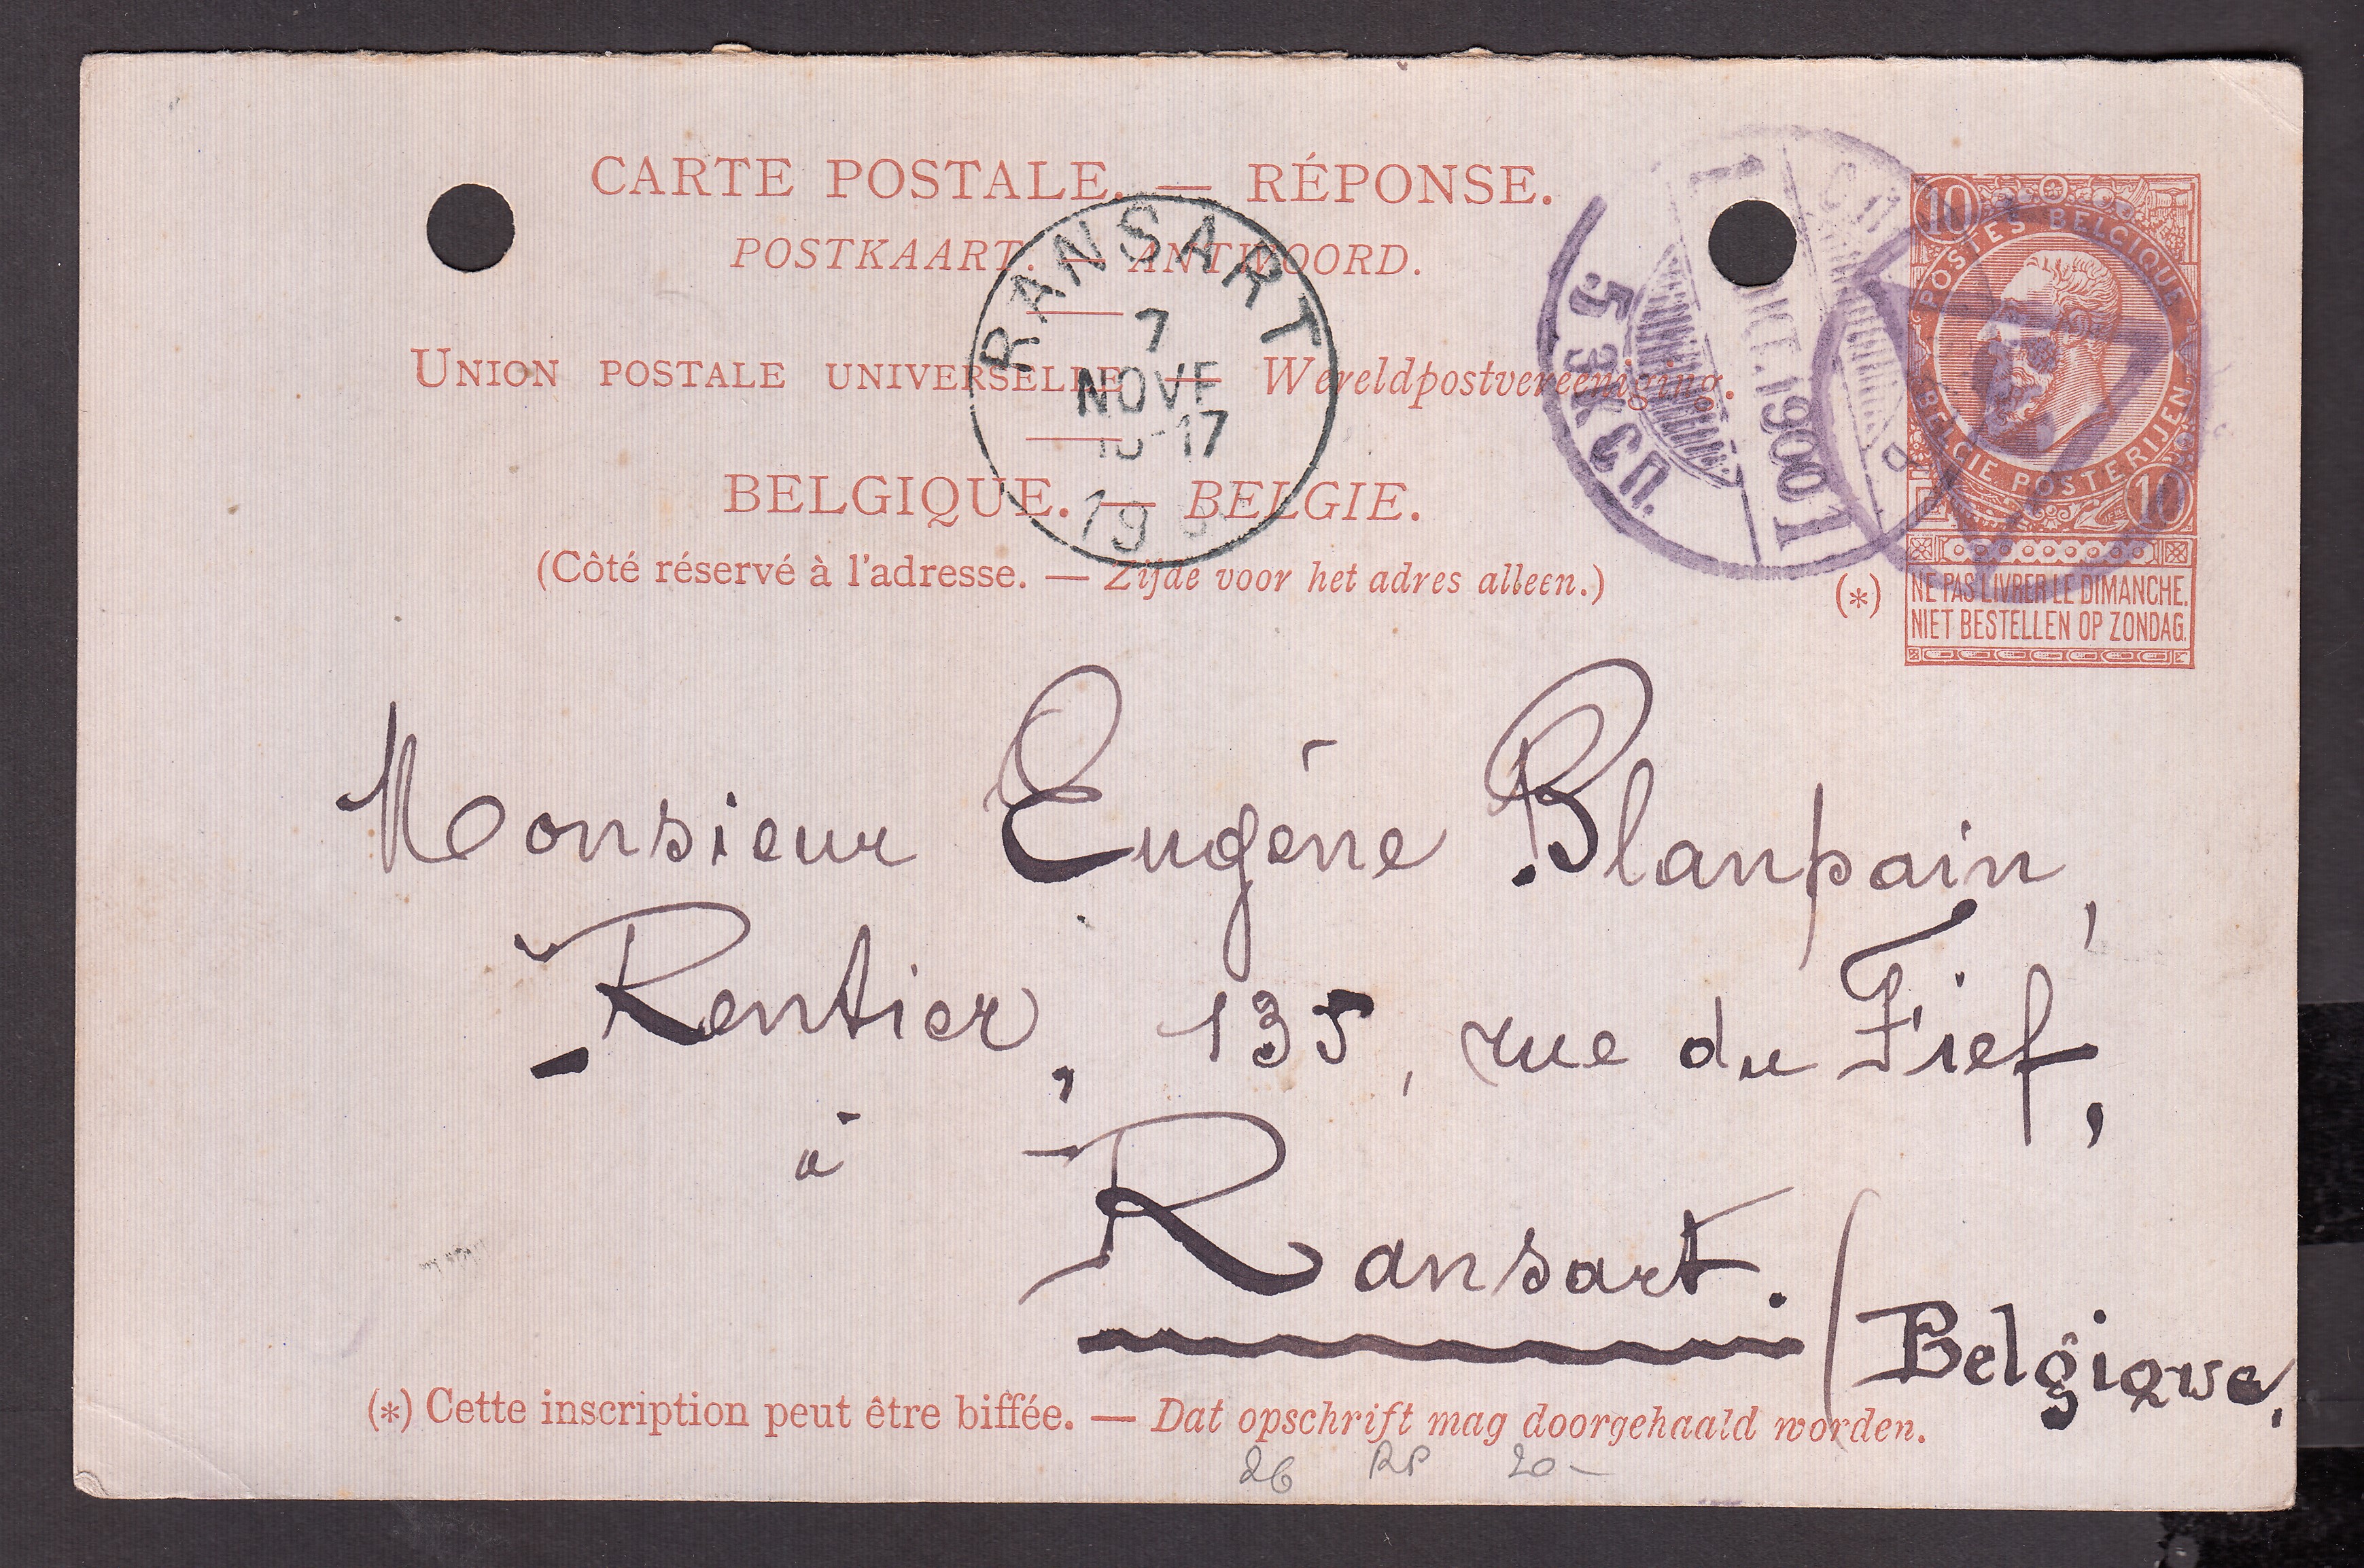 CARTE POSTALE. — RÉPONSE.
POSTKAART. — ANTWOORD.
UNION POSTALE UNIVERSELLE — Wereldpostvereeniging.
BELGIQUE. — BELGIE.
(Côté réservé à l'adresse. — Zijde voor het adres alleen.)
RANSART
7
NOVE
-17
19
OKT. 1900
10
POSTES BELGIQUE
BELGIE POSTERIJEN
10
(*)
NE PAS LIVRER LE DIMANCHE.
NIET BESTELLEN OP ZONDAG.
Monsieur Eugène Blanpain,
Rentier, 135, rue du Fief,
à Ransart.
(Belgique.
(*) Cette inscription peut être biffée. — Dat opschrift mag doorgehaald worden.
26 RP 20-